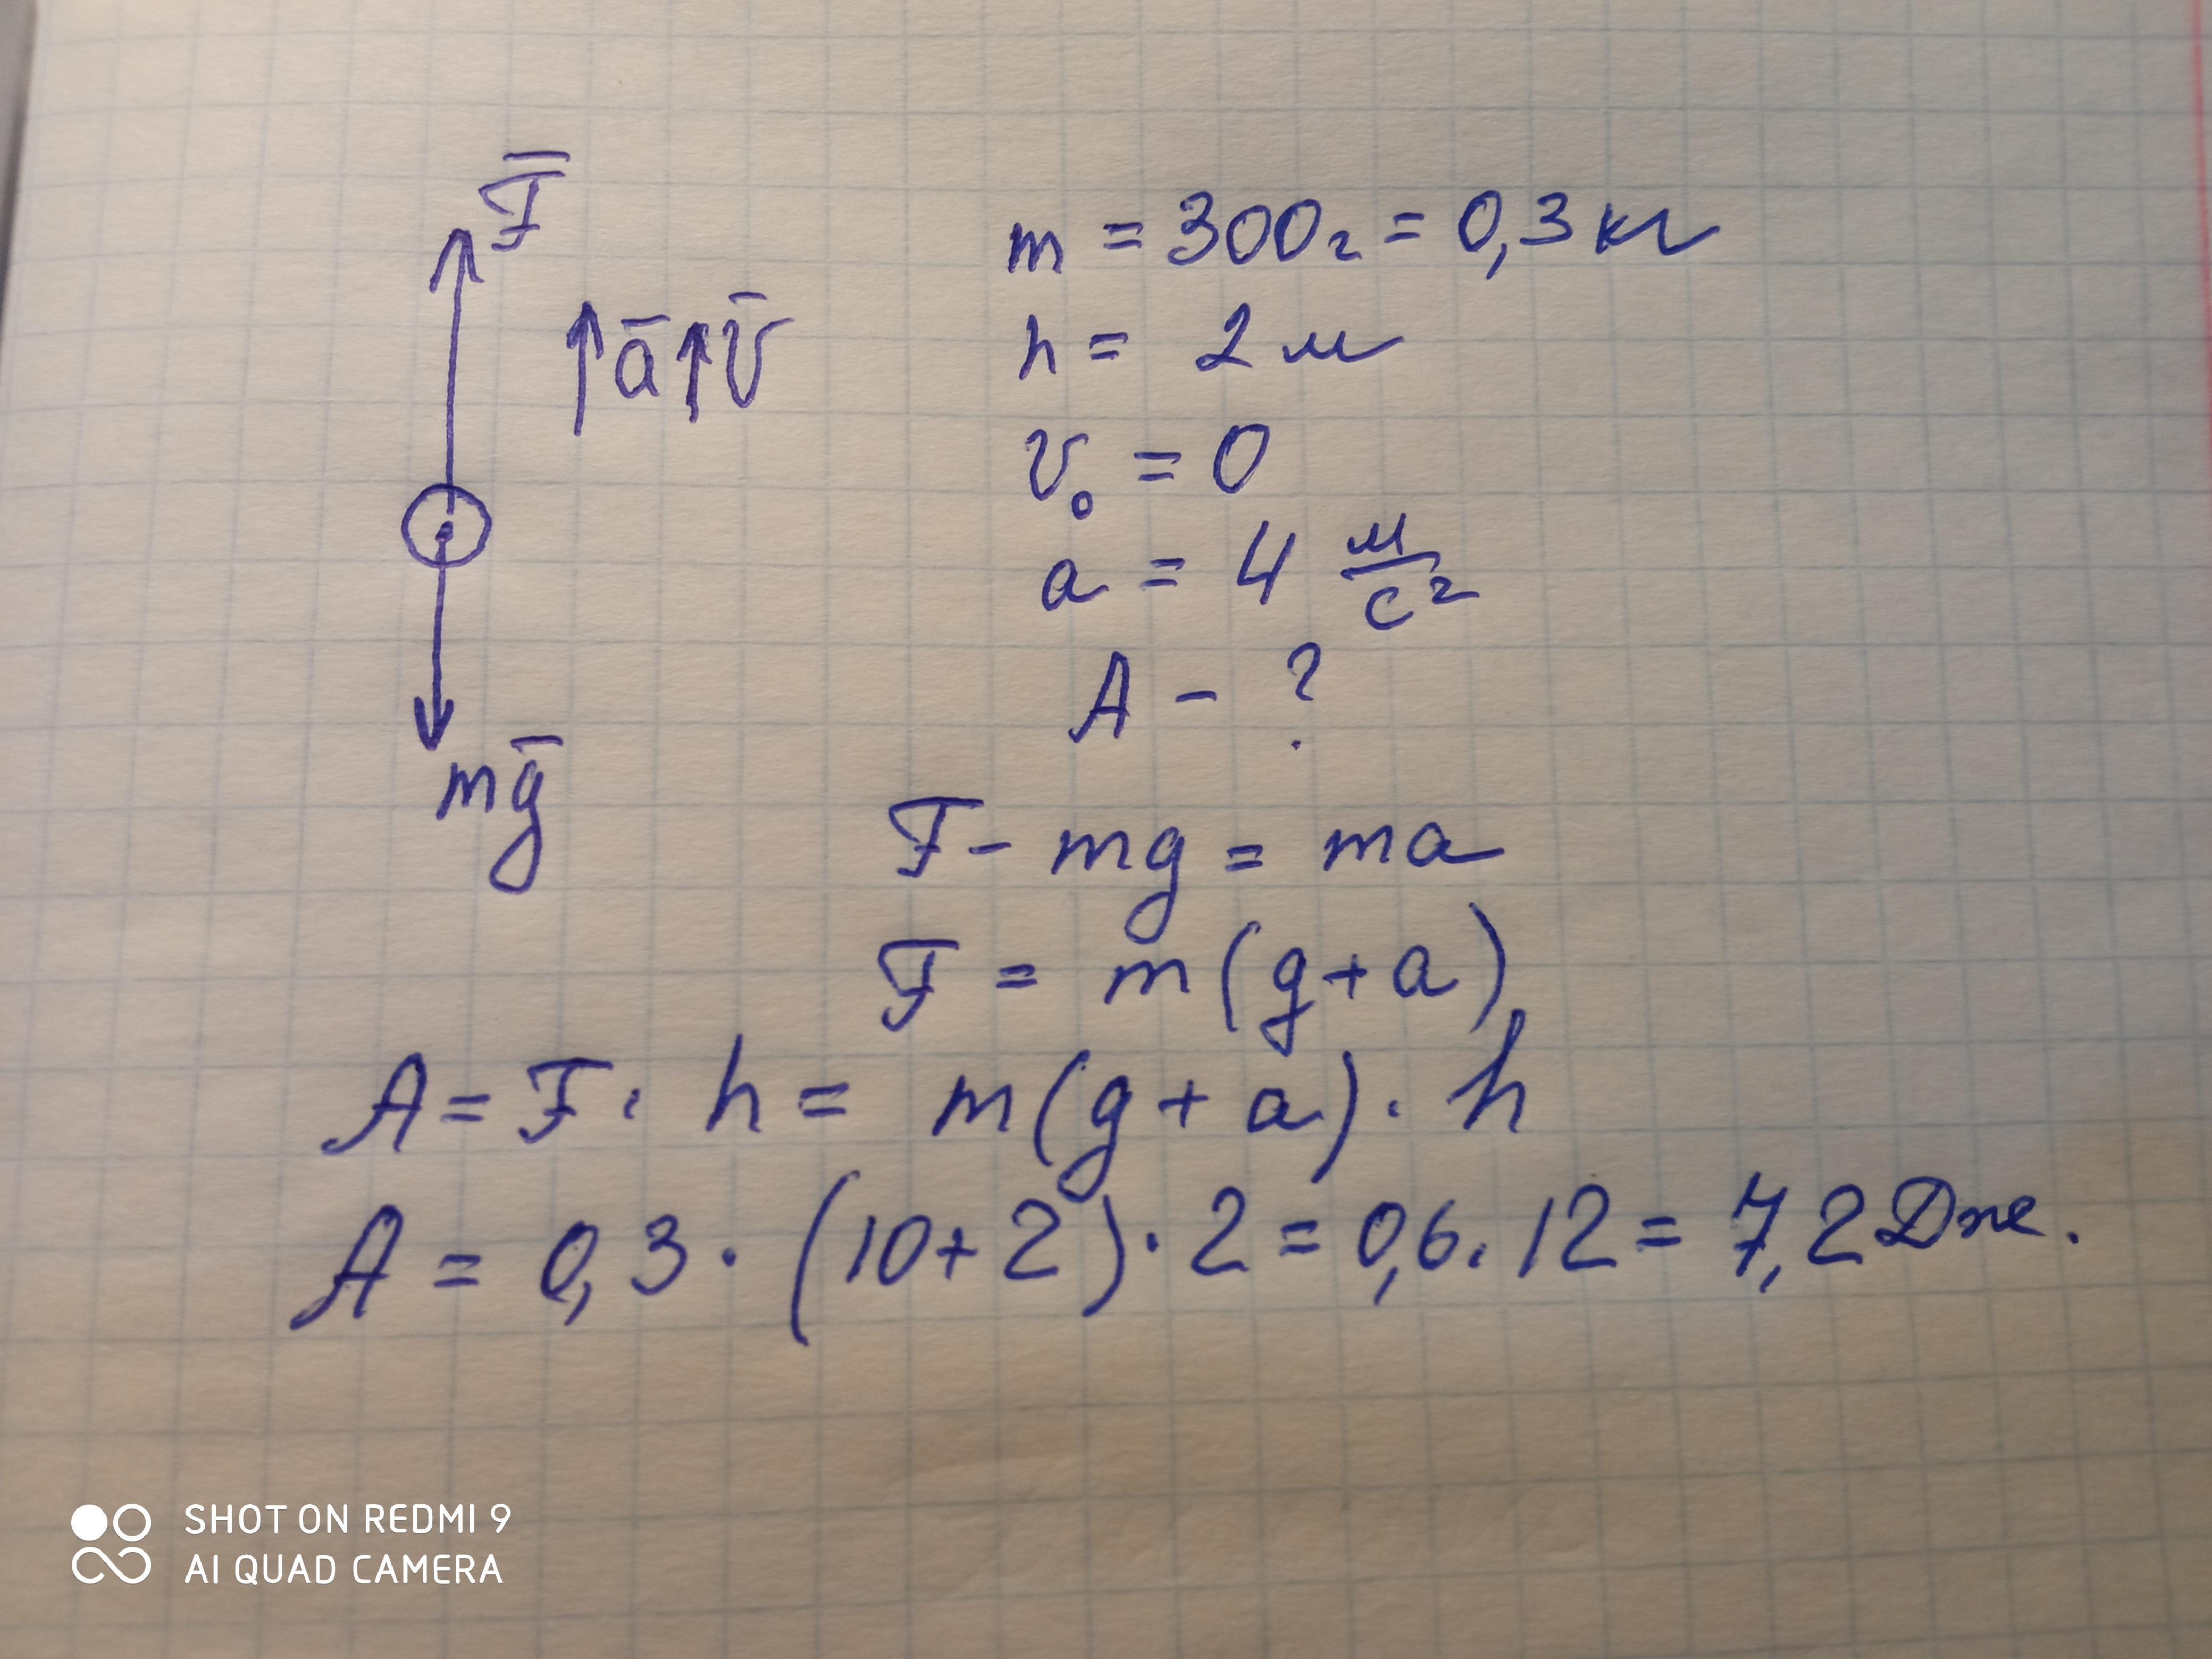 F̅
a̅ v̅
mg̅
m = 300г = 0,3 кг
h = 2 м
v₀ = 0
a = 4 м/с²
A - ?
F - mg = ma
F = m(g+a)
A = F · h = m(g + a) · h
A = 0,3 · (10+2) · 2 = 0,6 · 12 = 7,2 Дж.
SHOT ON REDMI 9
AI QUAD CAMERA